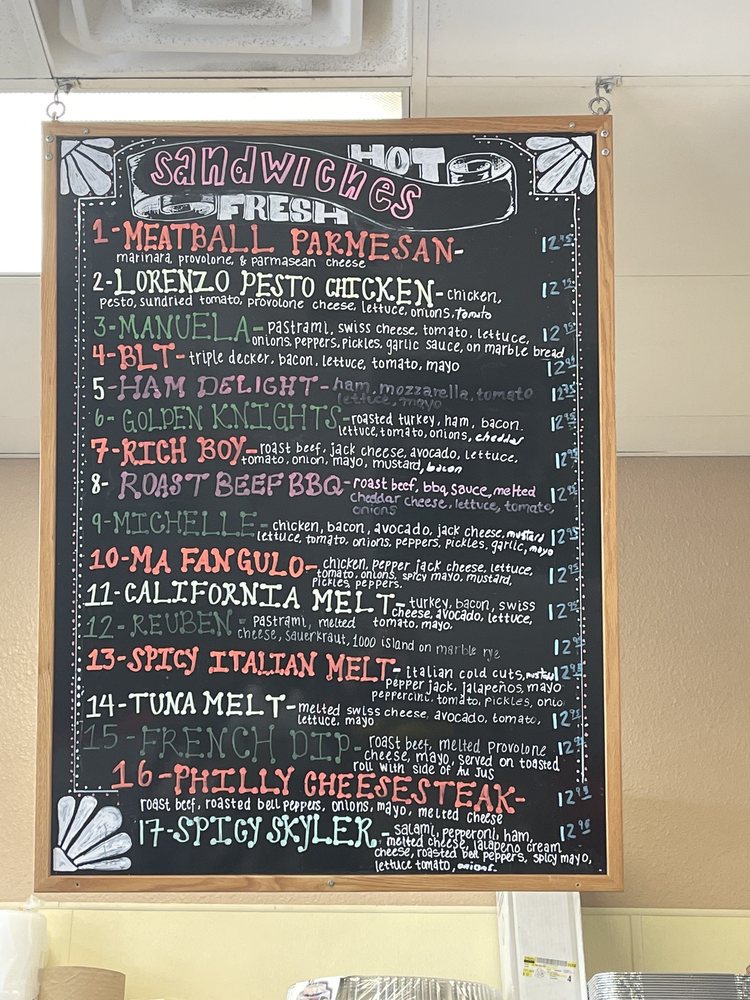 HOT
sandwiches
FRESH
1-MEATBALL PARMESAN- 12.95
marinara, provolone, & parmasean cheese
2-LORENZO PESTO CHICKEN-chicken, 12.95
pesto, sundried tomato, provolone cheese, lettuce, onions, tomato
3-MANUELA-pastrami, swiss cheese, tomato, lettuce, 12.95
onions, peppers, pickles, garlic sauce, on marble bread
4-BLT-triple decker, bacon, lettuce, tomato, mayo 12.95
5-HAM DELIGHT-ham, mozzarella, tomato 12.95
lettuce, mayo
6-GOLDEN KNIGHTS-roasted turkey, ham, bacon. 12.95
lettuce, tomato, onions, cheddar
7-RICH BOY-roast beef, jack cheese, avocado, lettuce, 12.95
tomato, onion, mayo, mustard, bacon
8-ROAST BEEF BBQ-roast beef, bbq sauce, melted 12.95
cheddar cheese, lettuce, tomato,
onions
9-MICHELLE-chicken, bacon, avocado, jack cheese, mustard 12.95
lettuce, tomato, onions, peppers, pickles, garlic, mayo
10-MA FANGULO-chicken, pepper jack cheese, lettuce, 12.95
tomato, onions, spicy mayo, mustard,
pickles, peppers.
11-CALIFORNIA MELT-turkey, bacon, swiss 12.95
cheese, avocado, lettuce,
tomato, mayo,
12-REUBEN-pastrami, melted 12.95
cheese, sauerkraut, 1000 island on marble rye
13-SPICY ITALIAN MELT-italian cold cuts, mustard 12.95
pepper jack, jalapeños, mayo
peppercini, tomato, pickles, onio
14-TUNA MELT-melted swiss cheese, avocado, tomato, 12.95
lettuce, mayo
15-FRENCH DIP-roast beef, melted provolone 12.95
cheese, mayo, served on toasted
roll with side of Au Jus
16-PHILLY CHEESESTEAK- 12.95
roast beef, roasted bell peppers, onions, mayo, melted cheese
17-SPICY SKYLER-salami, pepperoni, ham, 12.95
melted cheese, jalapeño cream
cheese, roasted bell peppers, spicy mayo,
lettuce tomato, onions.